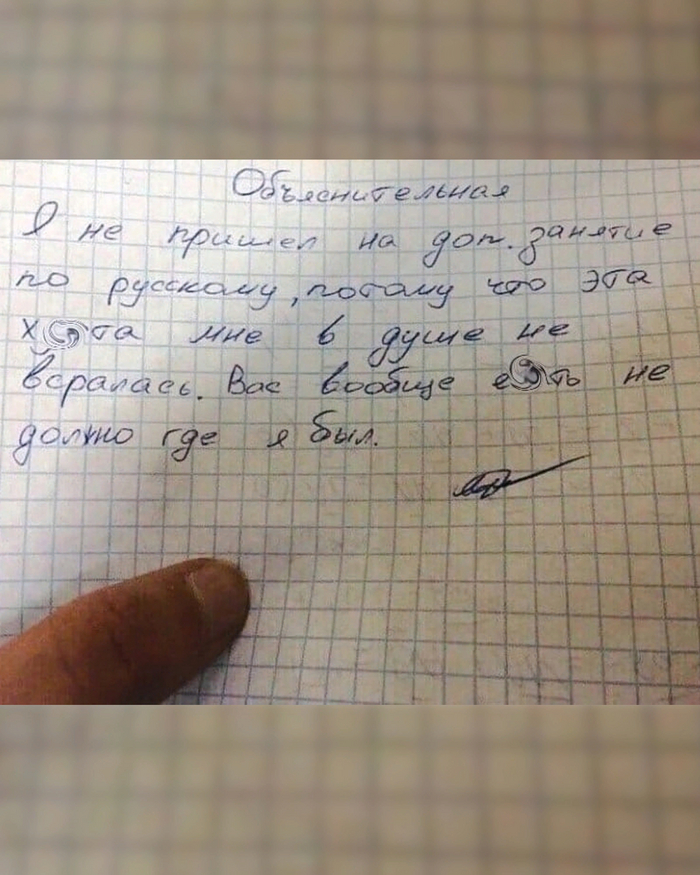 Объяснительная
Я не пришел на доп. занятие
по русскому, потому что эта
мне в душе не
всралась. Вас вообще не
должно где я был.